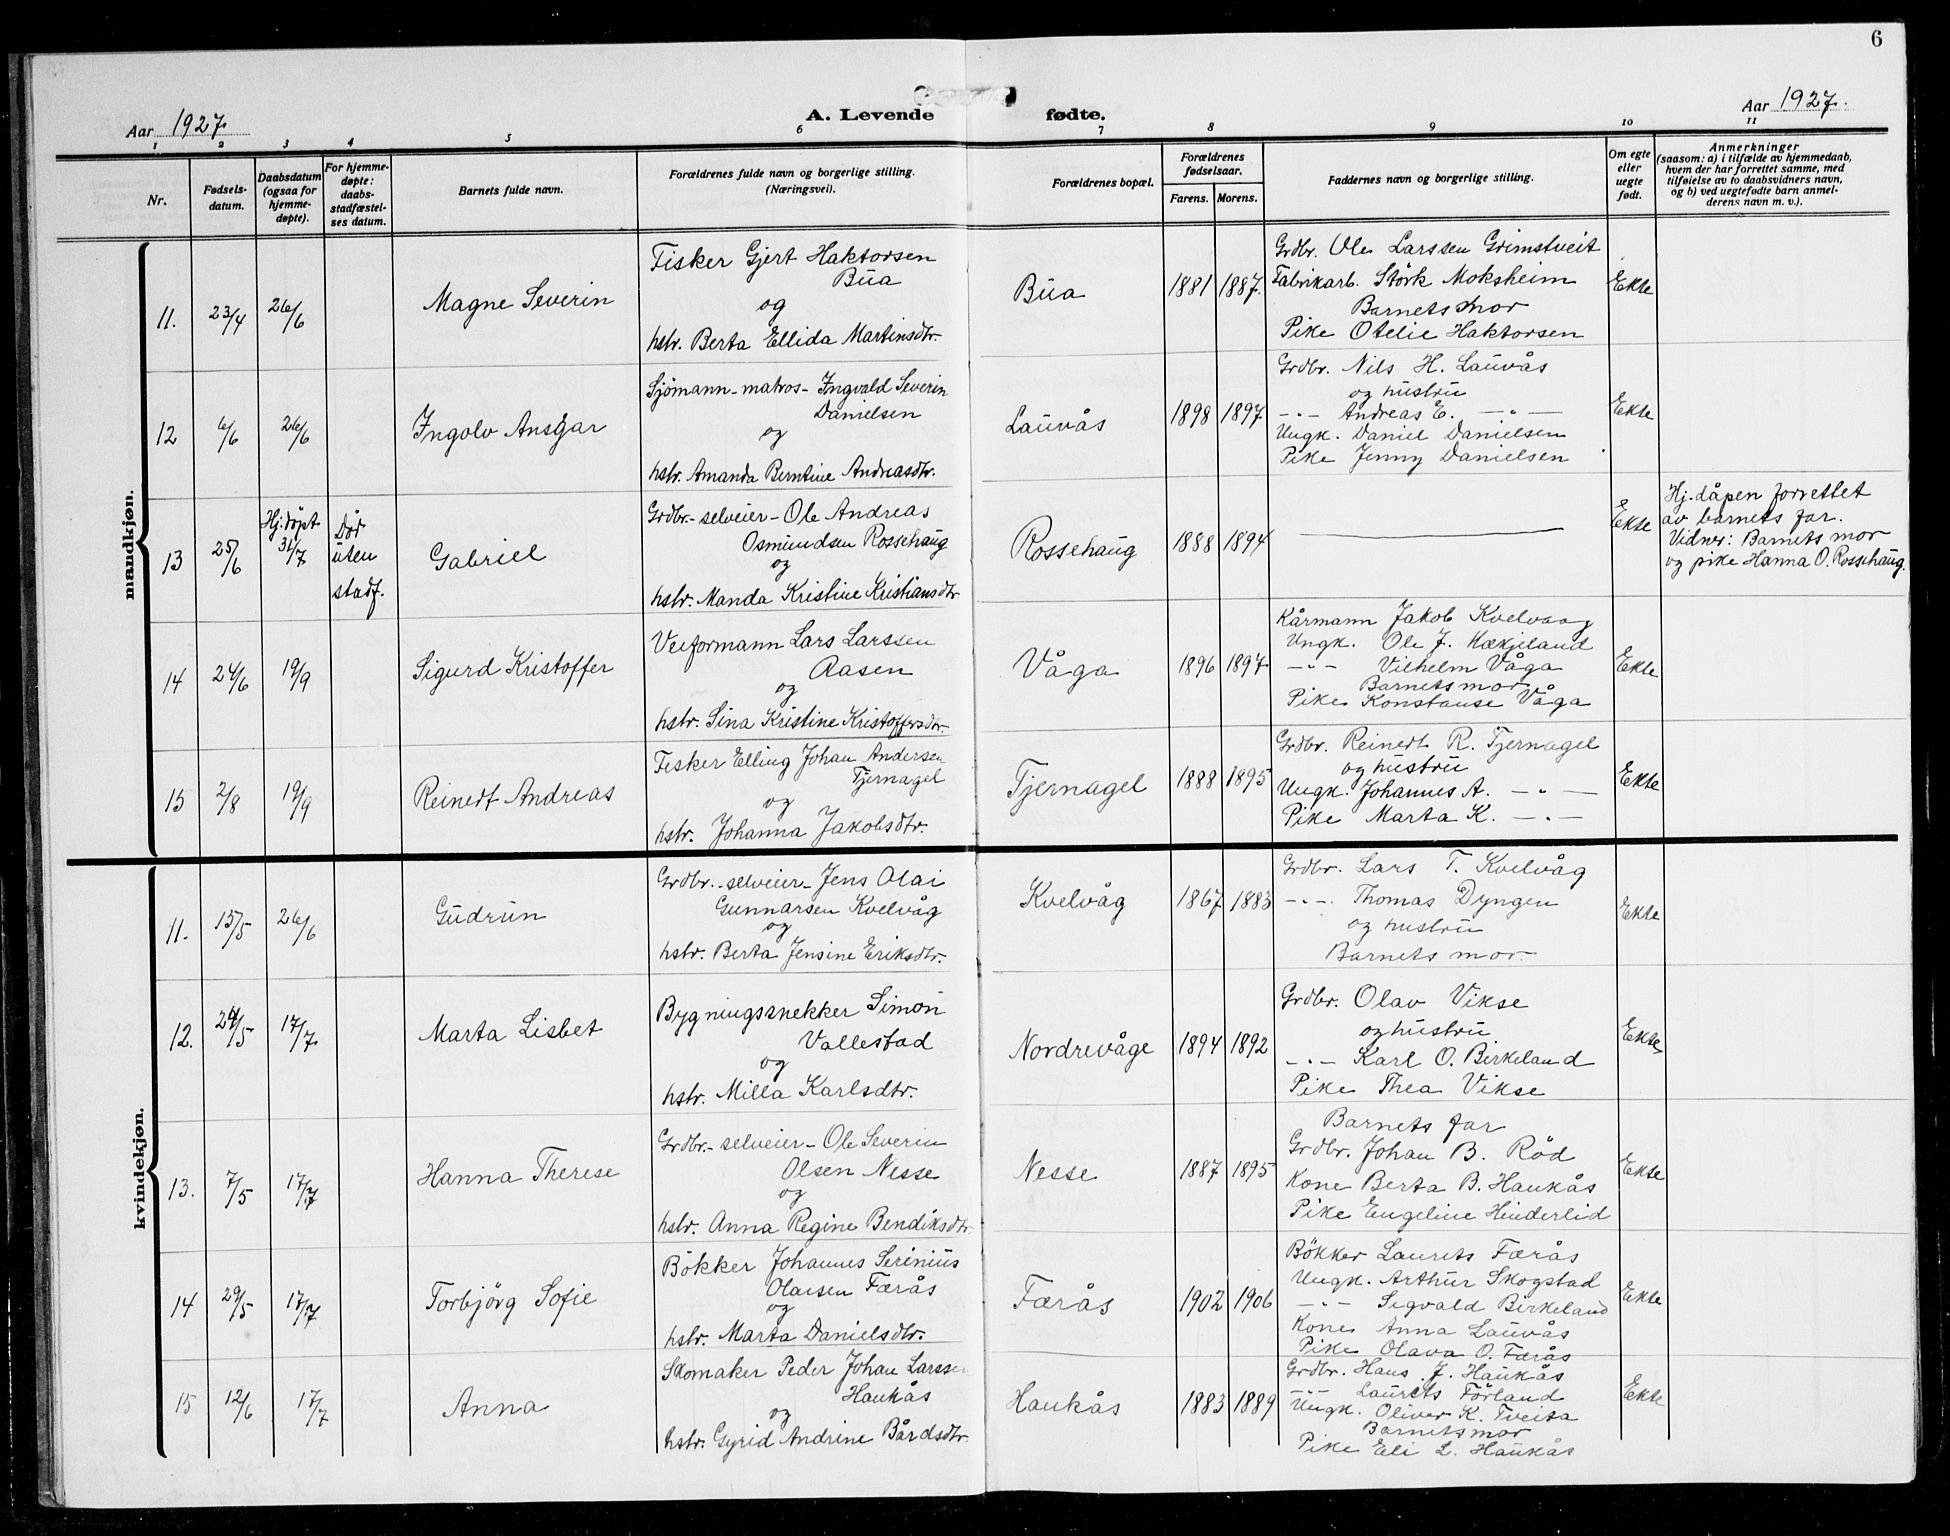 6
Aar 1927
A. Levende fødte.
Aar 1927.
1 2 3 4 5 6 7 8 9 10 11
Nr.
Fødsels-
datum.
Daabsdatum
(ogsaa for
hjemme-
døpte).
For hjemme-
døpte:
daabs-
stadfæstel-
ses datum.
Barnets fulde navn.
Forældrenes fulde navn og borgerlige stilling.
(Næringsvei).
Forældrenes bopæl.
Forældrenes
fødselsaar.
Farens. Morens.
Faddernes navn og borgerlige stilling.
Om egte
eller
uegte
født.
Anmerkninger
(saasom: a) i tilfælde av hjemmedaab,
hvem der har forrettet samme, med
tilføielse av to daabsvidners navn,
og b) ved uegtefødte barn anmel-
derens navn m. v.).
mandkjøn.
11. 23/4 26/6
Magne Severin
Fisker Gjert Haktorsen
Bua
og
hstr. Berta Ellida Martinsdtr.
Bua
1881 1887.
Grdbr. Ole Larssen Grimstveit
Fabrikarb. Störk Moksheim
Barnets mor
Pike Otelie Haktorsen
Ekte
12 6/6 26/6
Ingolv Ansgar
Sjömann - matros - Ingvald Severin
Danielsen
og
hstr. Amanda Berntine Andreasdtr.
Lauvås
1898 1897
Grdbr. Nils H. Lauvås
og hustru
-"- Andreas E. -"-
Ungk. Daniel Danielsen
Pike Jenny Danielsen
Ekte
13 25/6
Hj. döpt
31/7
Död
uten
stadf.
Gabriel
Grdbr. - selveier - Ole Andreas
Osmundsen Rossehaug
og
hstr. Manda Kristine Kristiansdtr
Rossehaug
1888 1894
Ekte
Hj. dåpen forrettet
av barnets far.
Vidner: Barnets mor
og pike Hanna O. Rossehaug.
14 24/6 19/9
Sigurd Kristoffer
Veiformann Lars Larssen
Aasen
og
hstr. Sina Kristine Kristoffersdtr.
Våga
1896 1897
Kårmann Jakob Kvelvaag
Ungk. Ole J. Mækjeland
-"- Vilhelm Våga
Barnets mor
Pike Konstanse Våga
Ekte
15 2/8 19/9
Reinert Andreas
Fisker Elling Johan Andersen
Tjernagel
og
hstr. Johanna Jakobsdtr.
Tjernagel
1888 1895
Grdbr. Reinert R. Tjernagel
og hustru
Ungk. Johannes A. -"-
Pike Marta K. -"-
Ekte
kvindekjøn.
11. 15/5 26/6
Gudrun
Grdbr. - selveier - Jens Olai
Gunnarsen Kvelvåg
og
hstr. Berta Jensine Eriksdtr.
Kvelvåg
1867 1883
Grdbr. Lars T. Kvelvåg
-"- Thomas Dyngen
og hustru
Barnets mor.
Ekte
12. 24/5 17/7
Marta Lisbet
Bygningssnekker Simon
Vallestad
og
hstr. Milla Karlsdtr.
Nordrevåge
1894 1892
Grdbr. Olav Vikse
og hustru
-"- Karl O. Birkeland
Pike Thea Vikse
Ekte
13. 7/5 17/7
Hanna Therese
Grdbr. - selveier - Ole Severin
Olsen Nesse
og
hstr. Anna Regine Bendiksdtr.
Nesse
1887 1895
Barnets far
Grdbr. Johan B. Röd
Kone Berta B. Haukås
Pike Engeline Hinderlid
Ekte
14 29/5 17/7
Torbjörg Sofie
Bökker Johannes Serinius
Olaisen Færås
og
hstr. Marta Danielsdtr.
Færås
1902 1906
Bökker Laurits Færås
Ungk. Arthur Skogstad
-"- Sigvald Birkeland
Kone Anna Lauvås
Pike Olava O. Færås
Ekte
15 12/6 17/7
Anna
Skomaker Peder Johan Larssen
Haukås
og
hstr. Gyrid Andrine Bårdsdtr.
Haukås
1883 1889
Grdbr. Hans J. Haukås
-"- Laurits Förland
Ungk. Oliver K. Tveita
Barnets mor
Pike Eli L. Haukås
Ekte